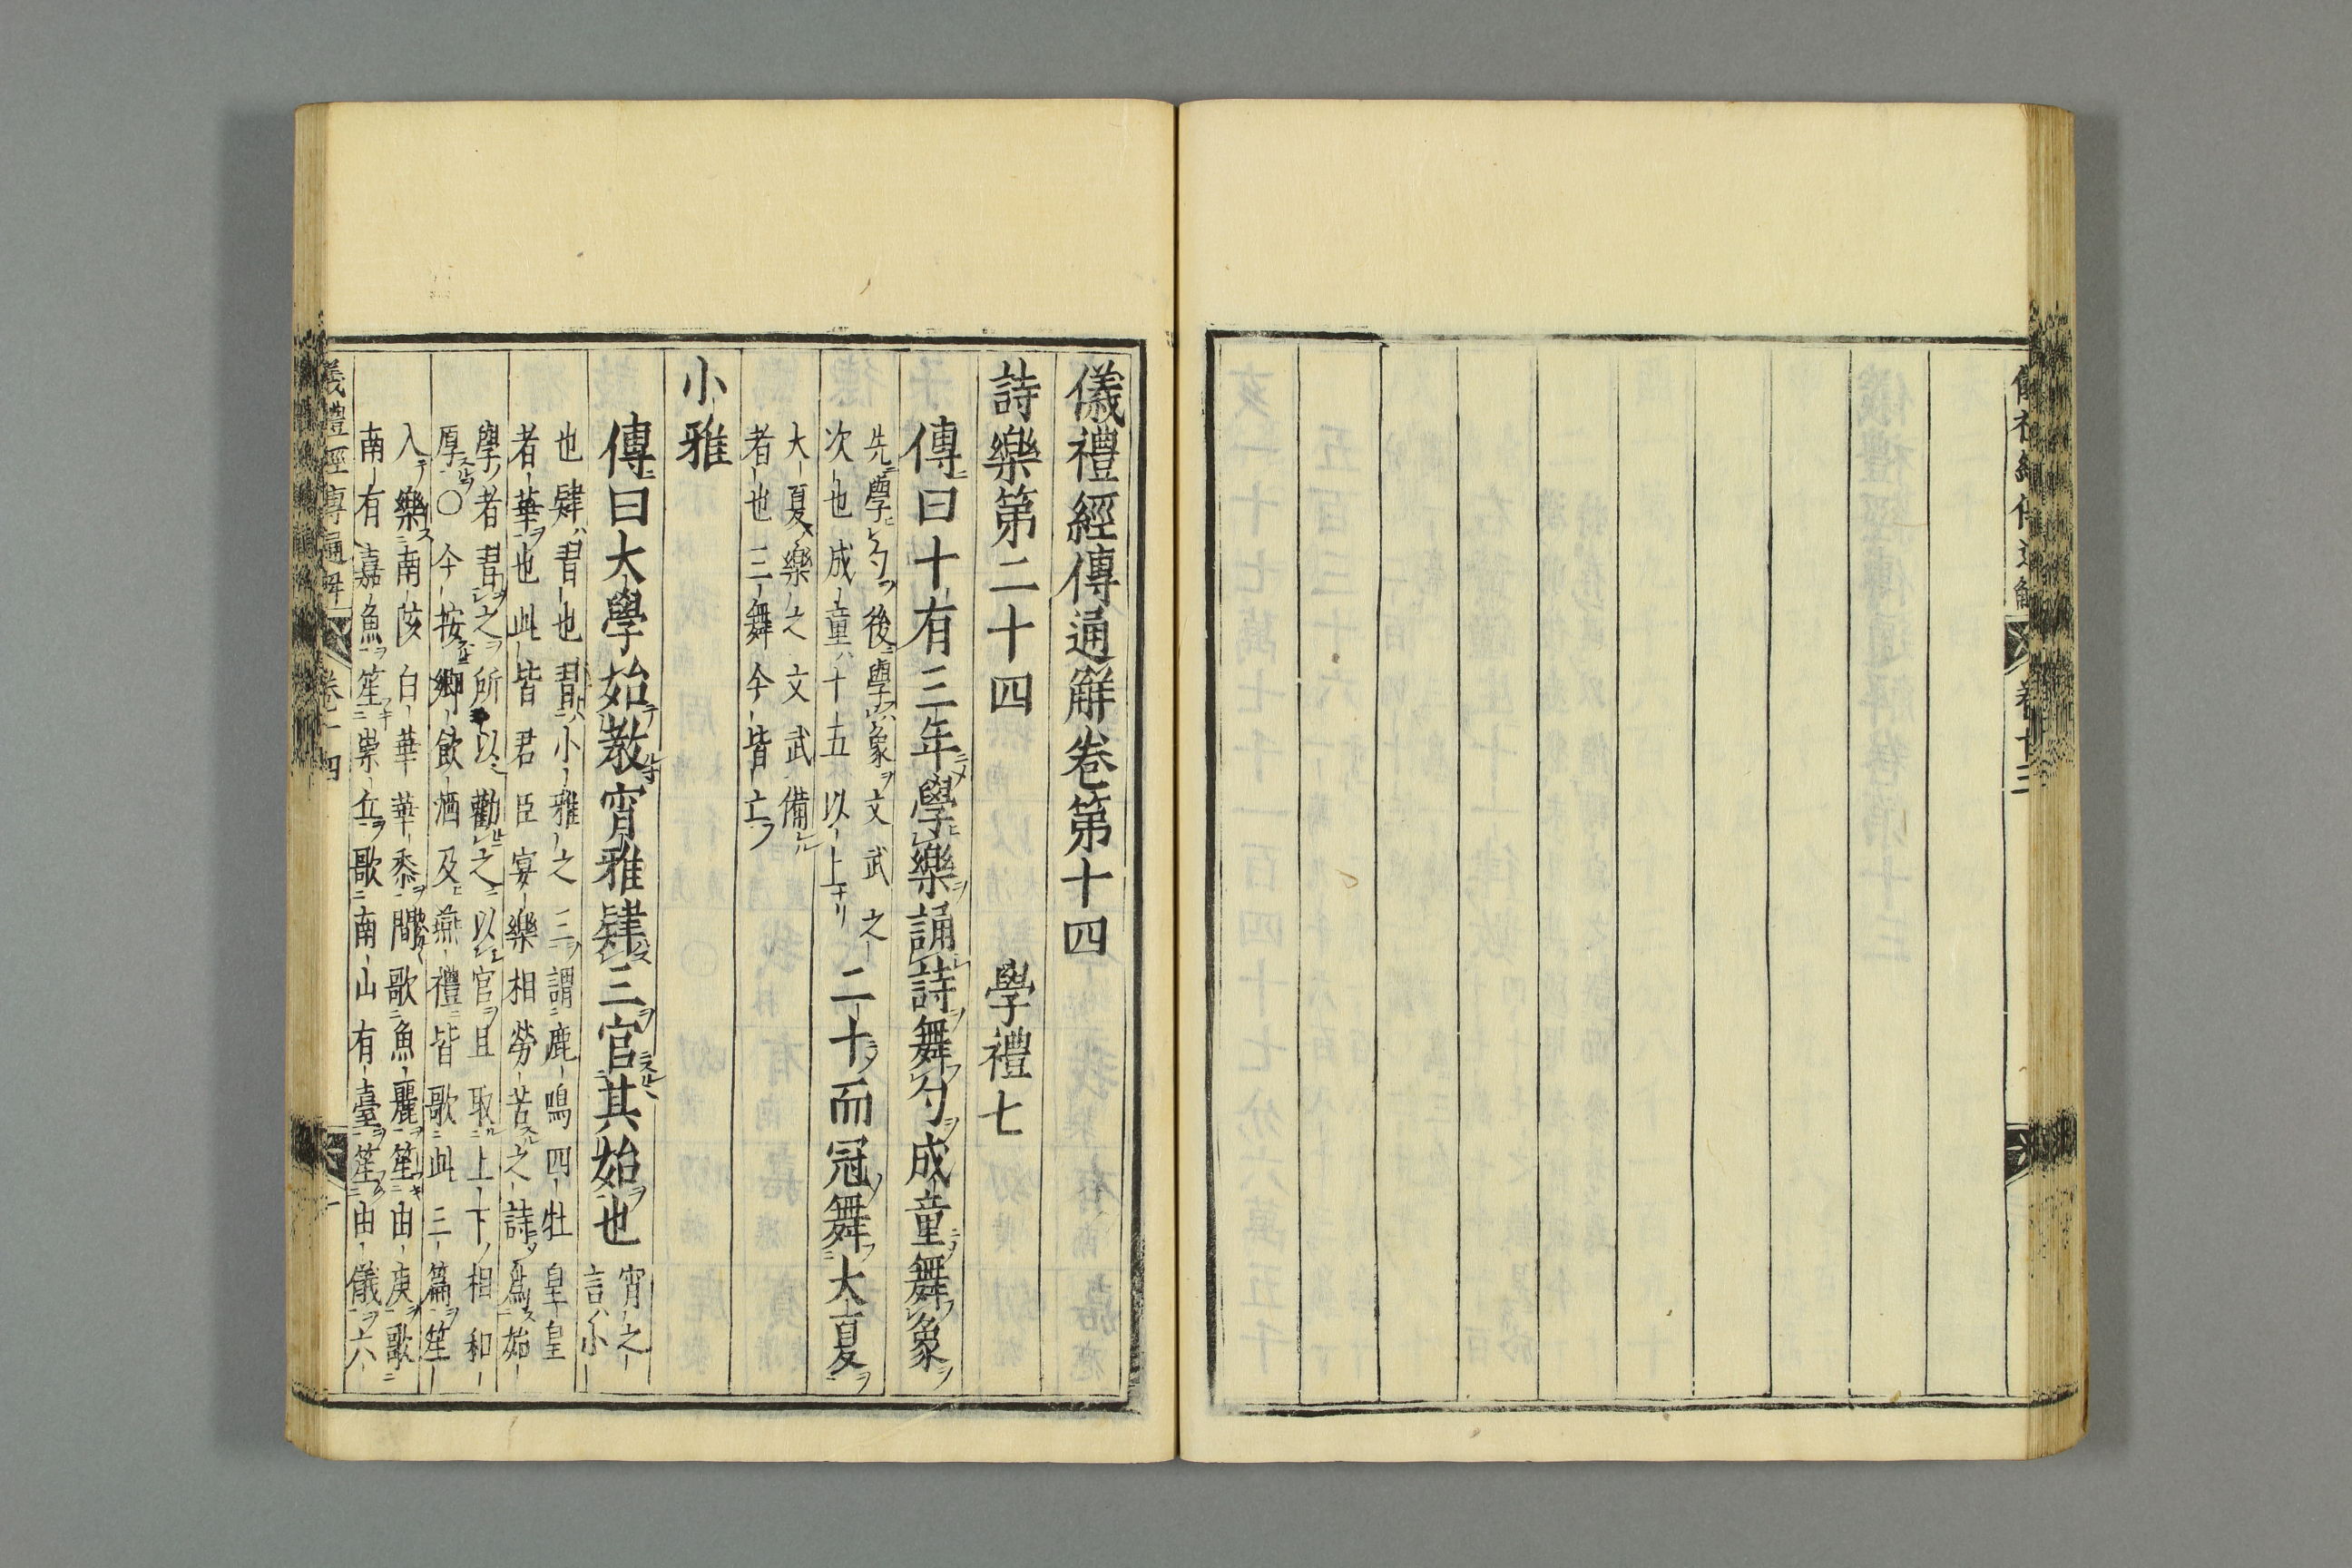 儀禮經傳通解卷第十四
詩樂第二十四　學禮七
傳曰十有三年學樂誦詩舞勺成童舞象
先學勺後學象文武之
次也成童十五以上
二十而冠舞大夏
大夏樂之文武備
者也三舞今皆亡
小雅
傳曰大學始教宵雅肄三官其始也
宵之
言小
也肄習也習小雅之三謂鹿鳴四牡皇皇
者華也此皆君臣宴樂相勞苦之詩爲始
學者習之所以勸之以官且取上下相和
厚〇今按鄉飲酒及燕禮皆歌此三篇笙
入樂南陔白華華黍間歌魚麗笙由庚歌
南有嘉魚笙崇丘歌南山有臺笙由儀六
儀禮經傳通解　卷十四　一
卷十三